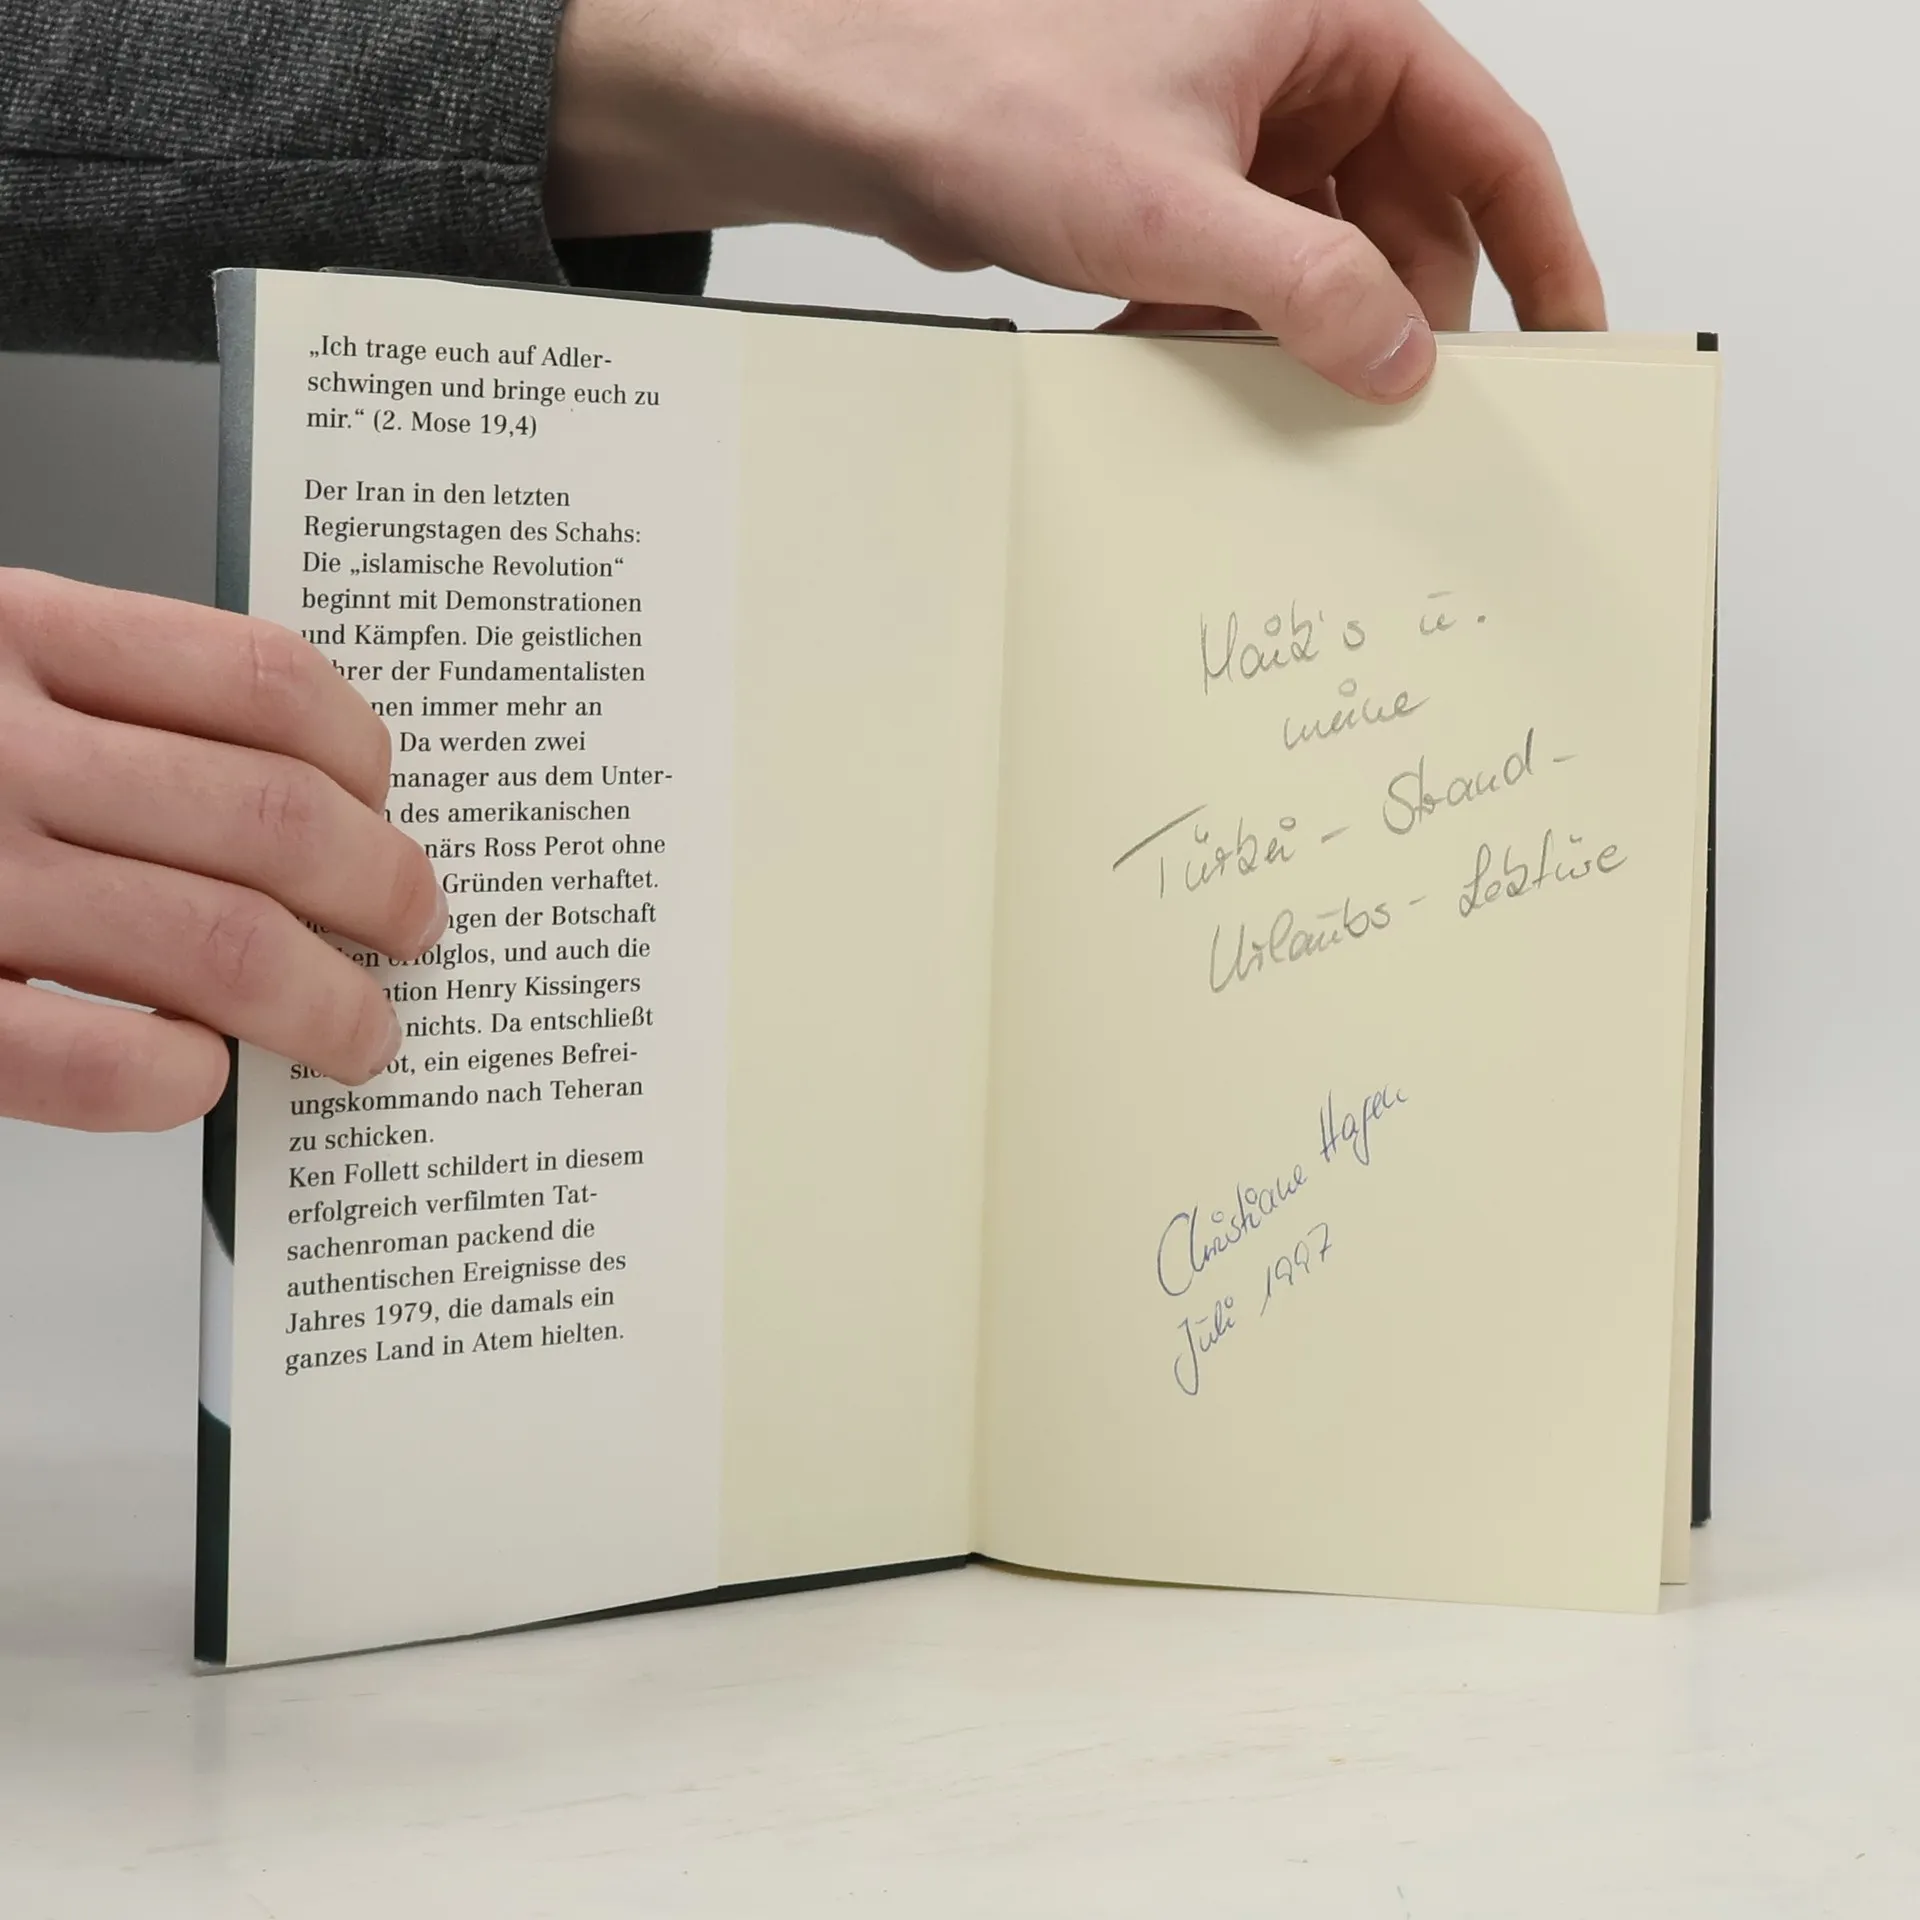 „Ich trage euch auf Adler-
schwingen und bringe euch zu
mir.“ (2. Mose 19,4)
Der Iran in den letzten
Regierungstagen des Schahs:
Die „islamische Revolution“
beginnt mit Demonstrationen
und Kämpfen. Die geistlichen
hrer der Fundamentalisten
nen immer mehr an
Da werden zwei
manager aus dem Unter-
des amerikanischen
närs Ross Perot ohne
Gründen verhaftet.
ngen der Botschaft
en erfolglos, und auch die
tion Henry Kissingers
nichts. Da entschließt
ot, ein eigenes Befrei-
ungskommando nach Teheran
zu schicken.
Ken Follett schildert in diesem
erfolgreich verfilmten Tat-
sachenroman packend die
authentischen Ereignisse des
Jahres 1979, die damals ein
ganzes Land in Atem hielten.
Maik's u.
meine
Türkei - Strand-
Urlaubs - Lektüre
Christiane Hagen
Juli 1997